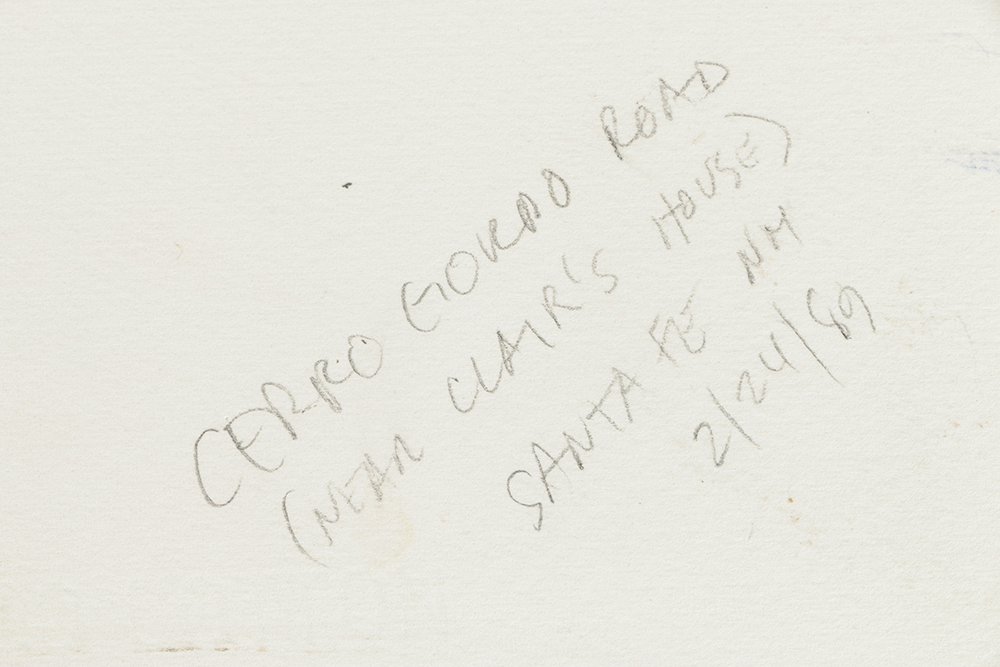 CERRO GORDO ROAD
(NEAR CLAIR'S HOUSE)
SANTA FE NM
2/24/89